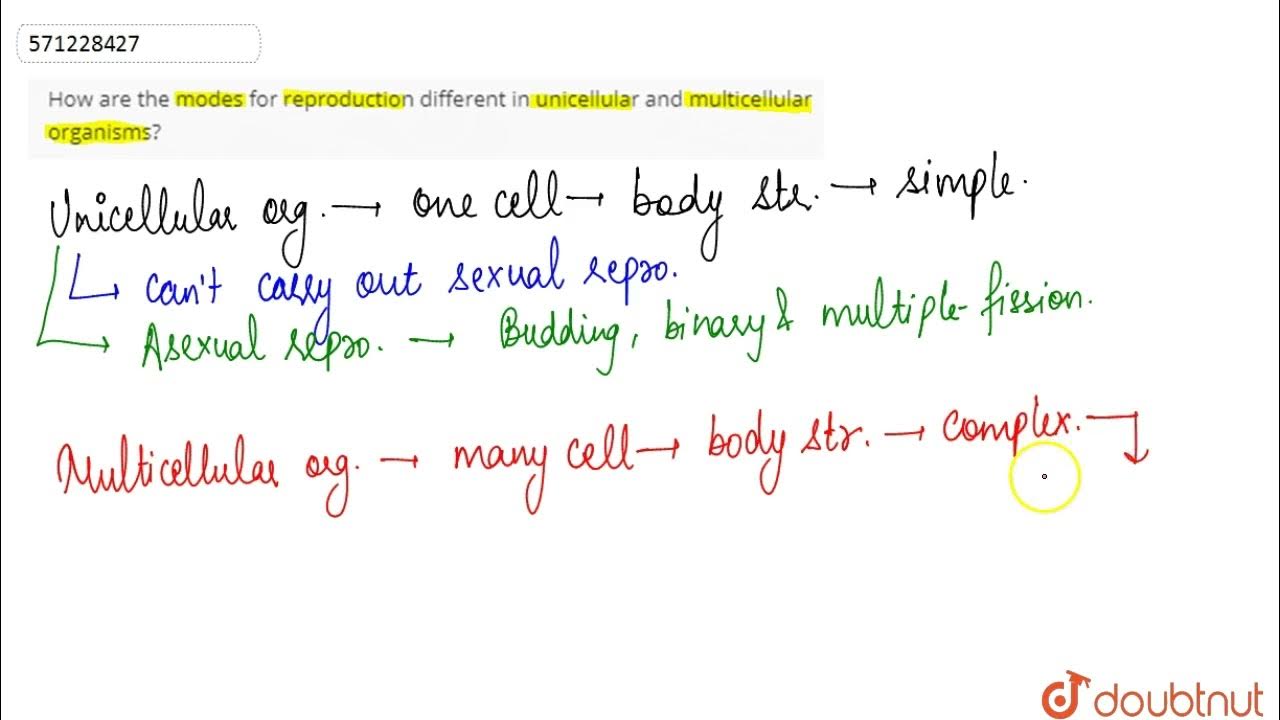 571228427
How are the modes for reproduction different in unicellular and multicellular
organisms?
Unicellular org. → one cell → body str. → simple.
↳ can't carry out sexual repro.
↳ Asexual repro. → Budding, binary & multiple-fission.
Multicellular org. → many cell → body str. → complex.
doubtnut